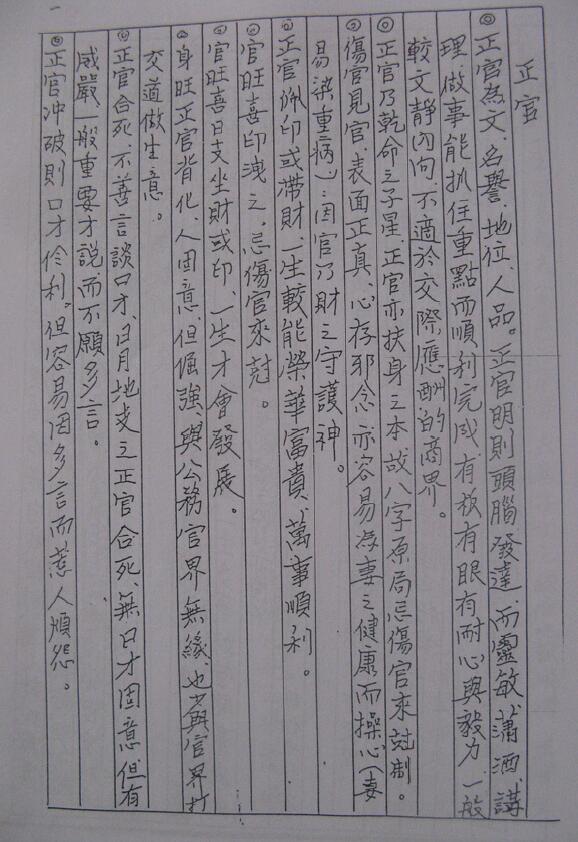 正官
◎正官為文、名譽、地位、人品。正官明則頭腦發達、而靈敏、瀟洒、講
理、做事能抓住重點而順利完成、有板有眼有耐心與毅力、一般
較文靜內向、不適於交際應酬的商界。
◎正官乃乾命之子星、正官亦扶身之本、故八字原局忌傷官來尅制。
◎傷官見官、表面正真、心存邪念、亦容易為妻之健康而操心（妻
易染重病）：因官乃財之守護神。
◎正官佩印或滯財、一生較能榮華富貴、萬事順利。
◎官旺喜印洩之、忌傷官來尅。
◎官旺喜日支坐財或印、一生才會發展。
◎身旺正官背化、人固意、但倔強、與公務官界無緣、也少與官界打
交道做生意。
◎正官合死、不善言談口才、日月地支之正官合死、無口才固意、但有
威嚴、一般重要才說、而不願多言。
◎正官冲破則口才伶利。但容易因多言而惹人煩怨。